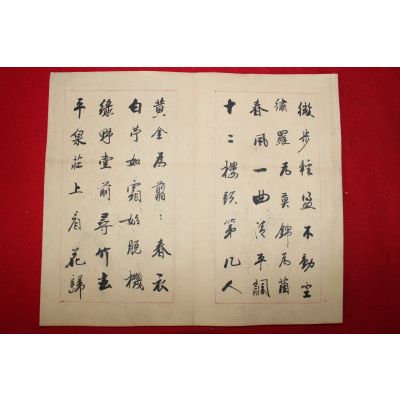 微步輕盈不動塵
繡羅為幕錦為茵
春風一曲清平調
十二樓頭第几人
黄金為翦〻春衣
白苧如霜始脫機
綠野堂前尋竹去
平泉莊上看花歸